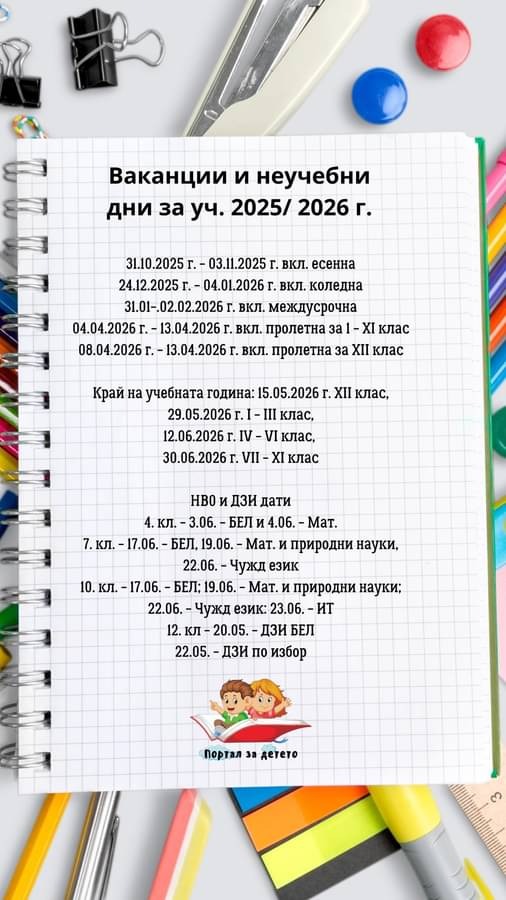 Ваканции и неучебни
дни за уч. 2025/ 2026 г.
31.10.2025 г. - 03.11.2025 г. вкл. есенна
24.12.2025 г. - 04.01.2026 г. вкл. коледна
31.01-.02.02.2026 г. вкл. междусрочна
04.04.2026 г. - 13.04.2026 г. вкл. пролетна за I - XI клас
08.04.2026 г. - 13.04.2026 г. вкл. пролетна за XII клас
Край на учебната година: 15.05.2026 г. XII клас,
29.05.2026 г. I - III клас,
12.06.2026 г. IV - VI клас,
30.06.2026 г. VII - XI клас
НВО и ДЗИ дати
4. кл. - 3.06. - БЕЛ и 4.06. - Мат.
7. кл. - 17.06. - БЕЛ, 19.06. - Мат. и природни науки,
22.06. - Чужд език
10. кл. - 17.06. - БЕЛ; 19.06. - Мат. и природни науки;
22.06. - Чужд език: 23.06. - ИТ
12. кл - 20.05. - ДЗИ БЕЛ
22.05. - ДЗИ по избор
Портал за детето